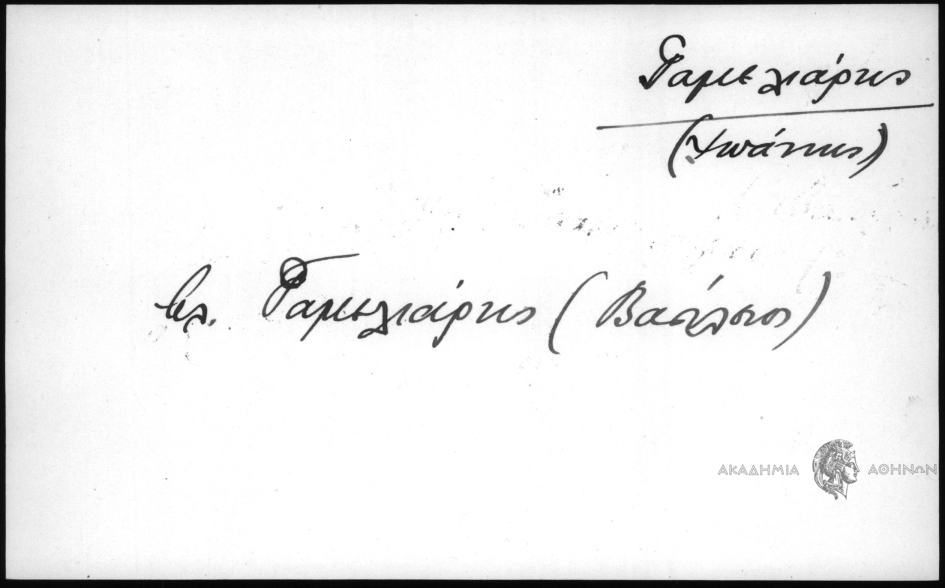 Γαμελιάρης
(Ψωάννης)
βλ. Γαμελιάρης (Βασίλειος)
ΑΚΑΔΗΜΙΑ ΑΘΗΝΩΝ